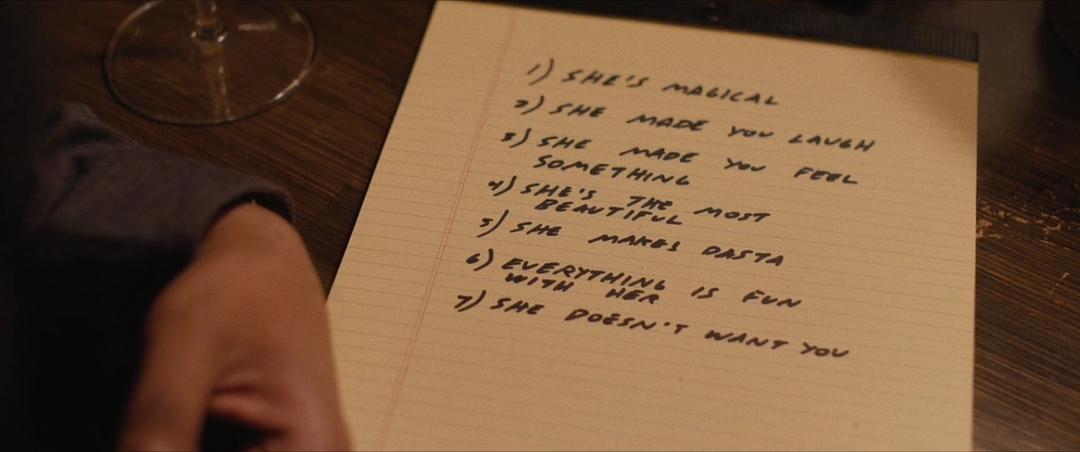 1) SHE'S MAGICAL
2) SHE MADE YOU LAUGH
3) SHE MADE YOU FEEL
SOMETHING
4) SHE'S THE MOST
BEAUTIFUL
5) SHE MAKES PASTA
6) EVERYTHING IS FUN
WITH HER
7) SHE DOESN'T WANT YOU